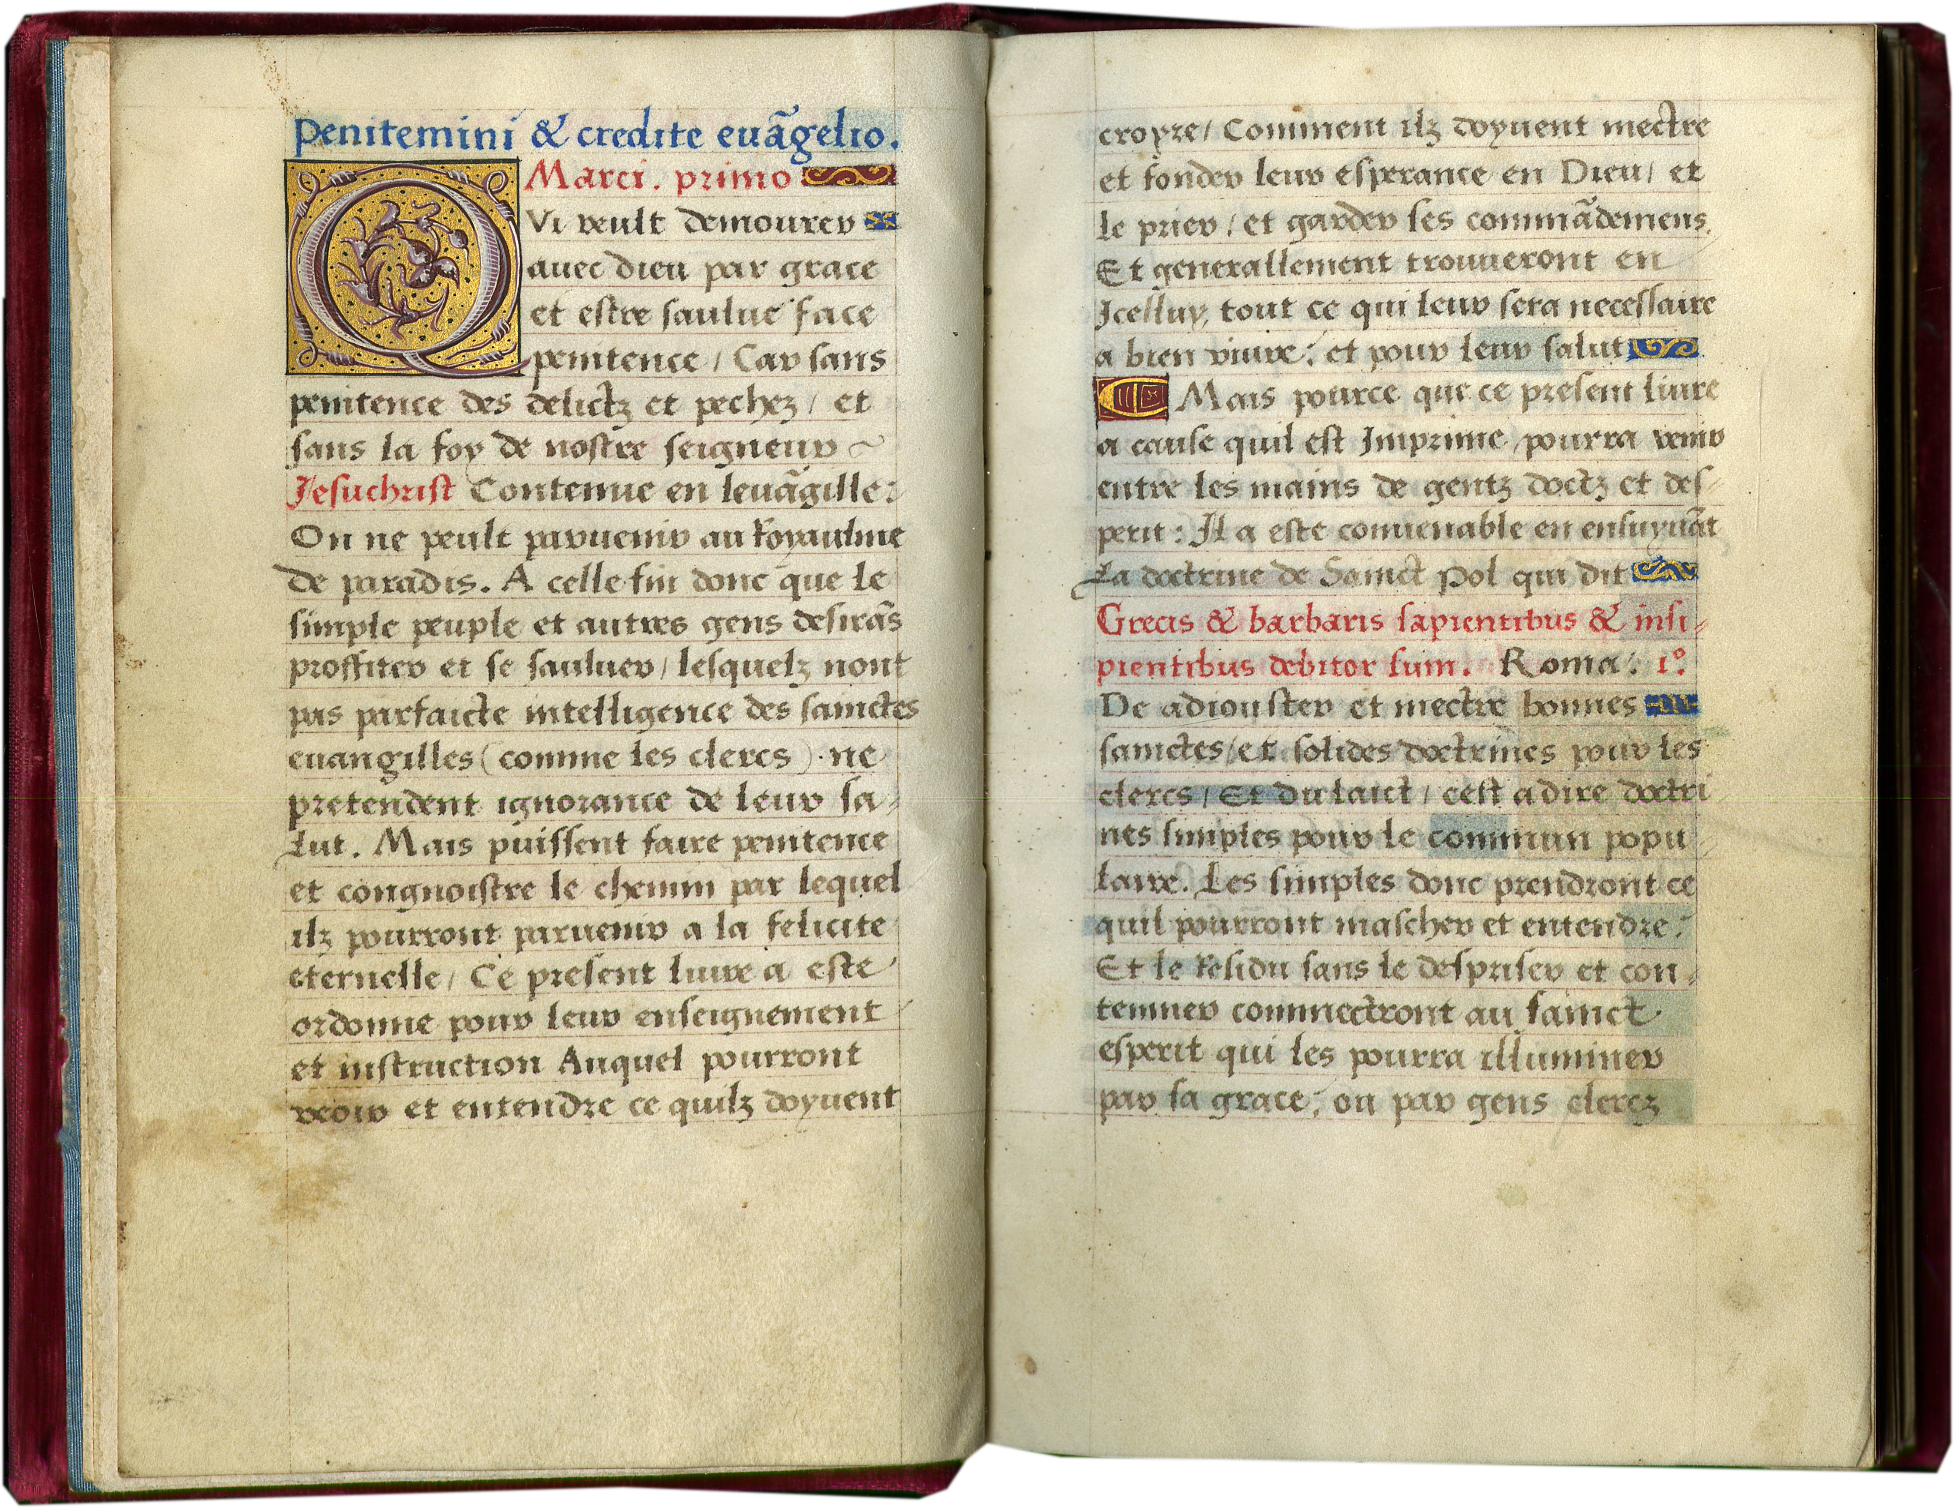 Penitemini & credite euãgelio.
Marci. primo
QVi veult demourer
auec dieu par grace
et estre saulue face
penitence / Car sans
penitence des delictz et pechez / et
sans la foy de nostre seigneur ~
Jesuchrist Contenue en leuãgille:
On ne peult paruenir au Royaulme
De paradis. A celle fin donc que le
simple peuple et autres gens desirãs
proffiter et se sauluer / lesquelz nont
pas parfaicte intelligence des sainctes
euangilles (comme les clercs). ne
pretendent ignorance de leur sa-
lut. Mais puissent faire penitence
et congnoistre le chemin par lequel
ilz pourront paruenir a la felicite
eternelle / Ce present liure a este
ordonne pour leur enseignement
et instruction Auquel pourront
veoir et entendre ce quilz doyuent
croyre / Comment ilz doyuent mectre
et fonder leur esperance en Dieu / et
le prier / et garder ses commãdemens.
Et generallement trouueront en
Jcelluy, tout ce qui leur sera necessaire
a bien viure: et pour leur salut
C Mais pource que ce present liure
a cause quil est Jmprime, pourra venir
entre les mains de gentz doctz et des-
perit: Jl a este conuenable en ensuyuãt
La doctrine de Sainct Pol qui dit
Grecis & barbaris sapientibus & insi-
pientibus debitor sum. Roma: 1º.
De adiouster et mectre bonnes
sainctes / et solides doctrines pour les
clercs / Et du laict / cest a dire doctri
nes simples pour le commun popu-
laire. Les simples donc prendront ce
quil pourront mascher et entendre:
Et le Residu sans le despriser et con-
temner commectront au sainct
esperit qui les pourra illuminer
par sa grace; ou par gens clercz